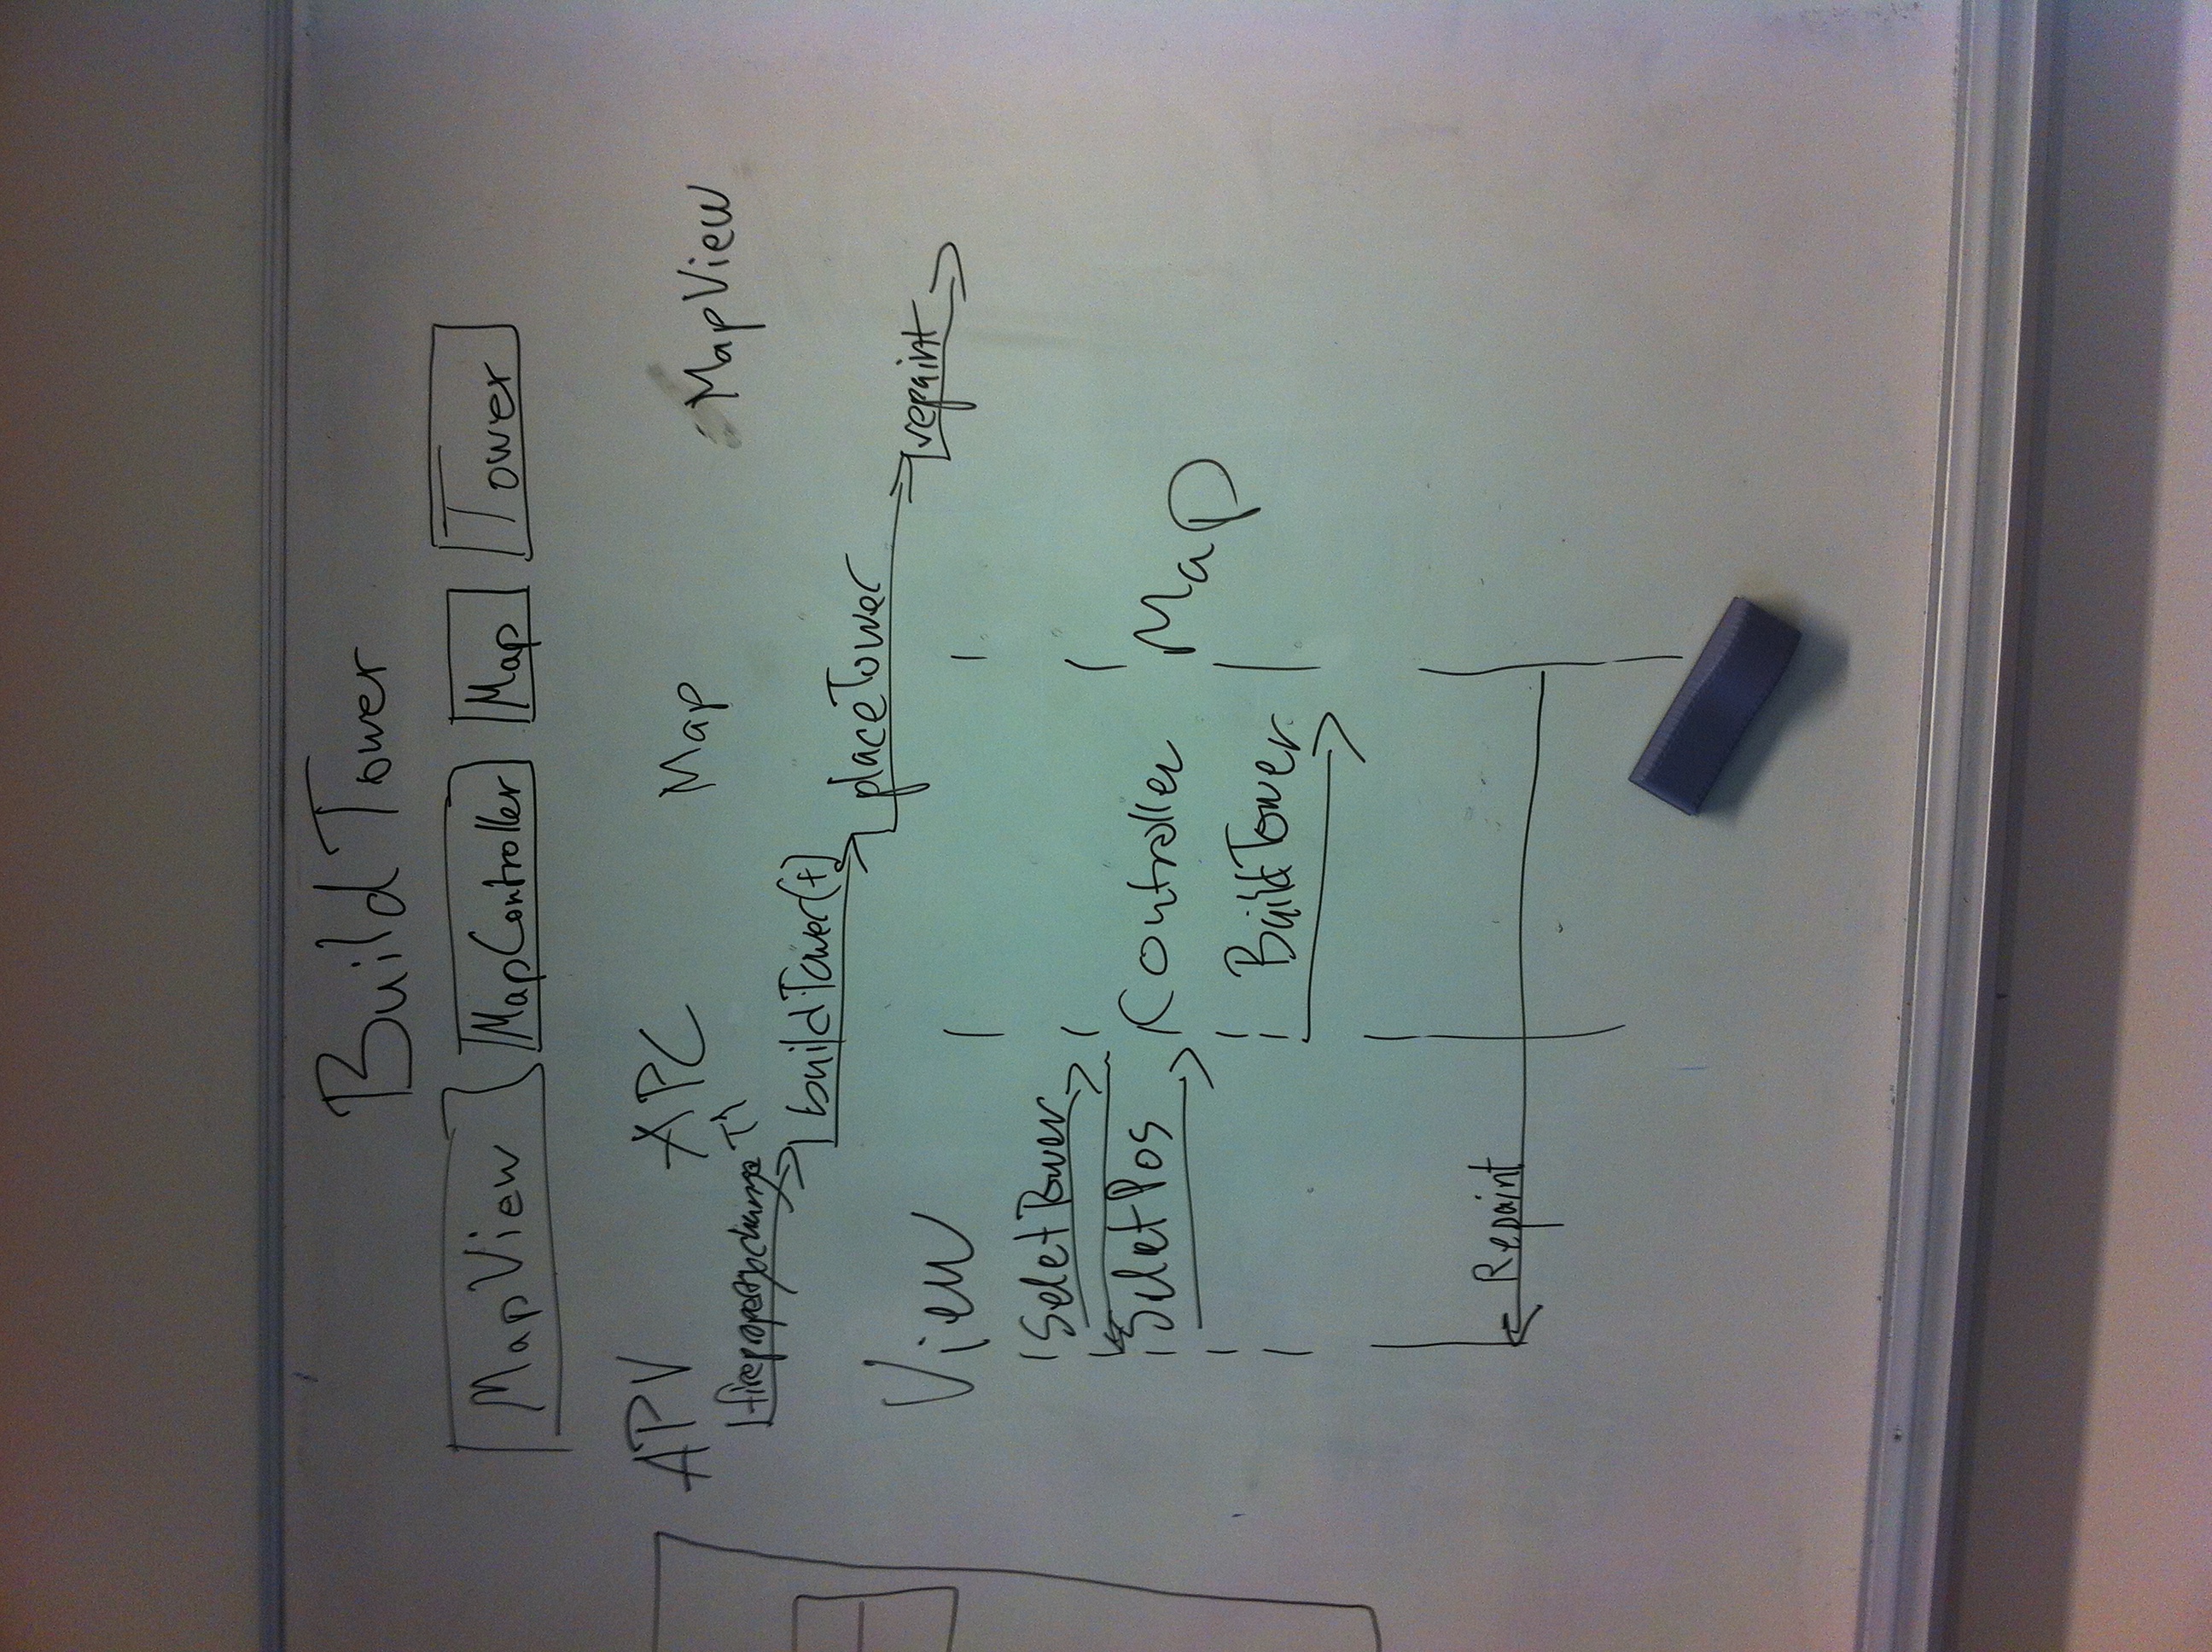 Build Tower
MapView MapController Map Tower
APV APC Map MapView
firepropertychange T1
buildTower(t)
placeTower
repaint
View
Selet Tower
SeletPos
Controller Map
BuildTower
Repaint